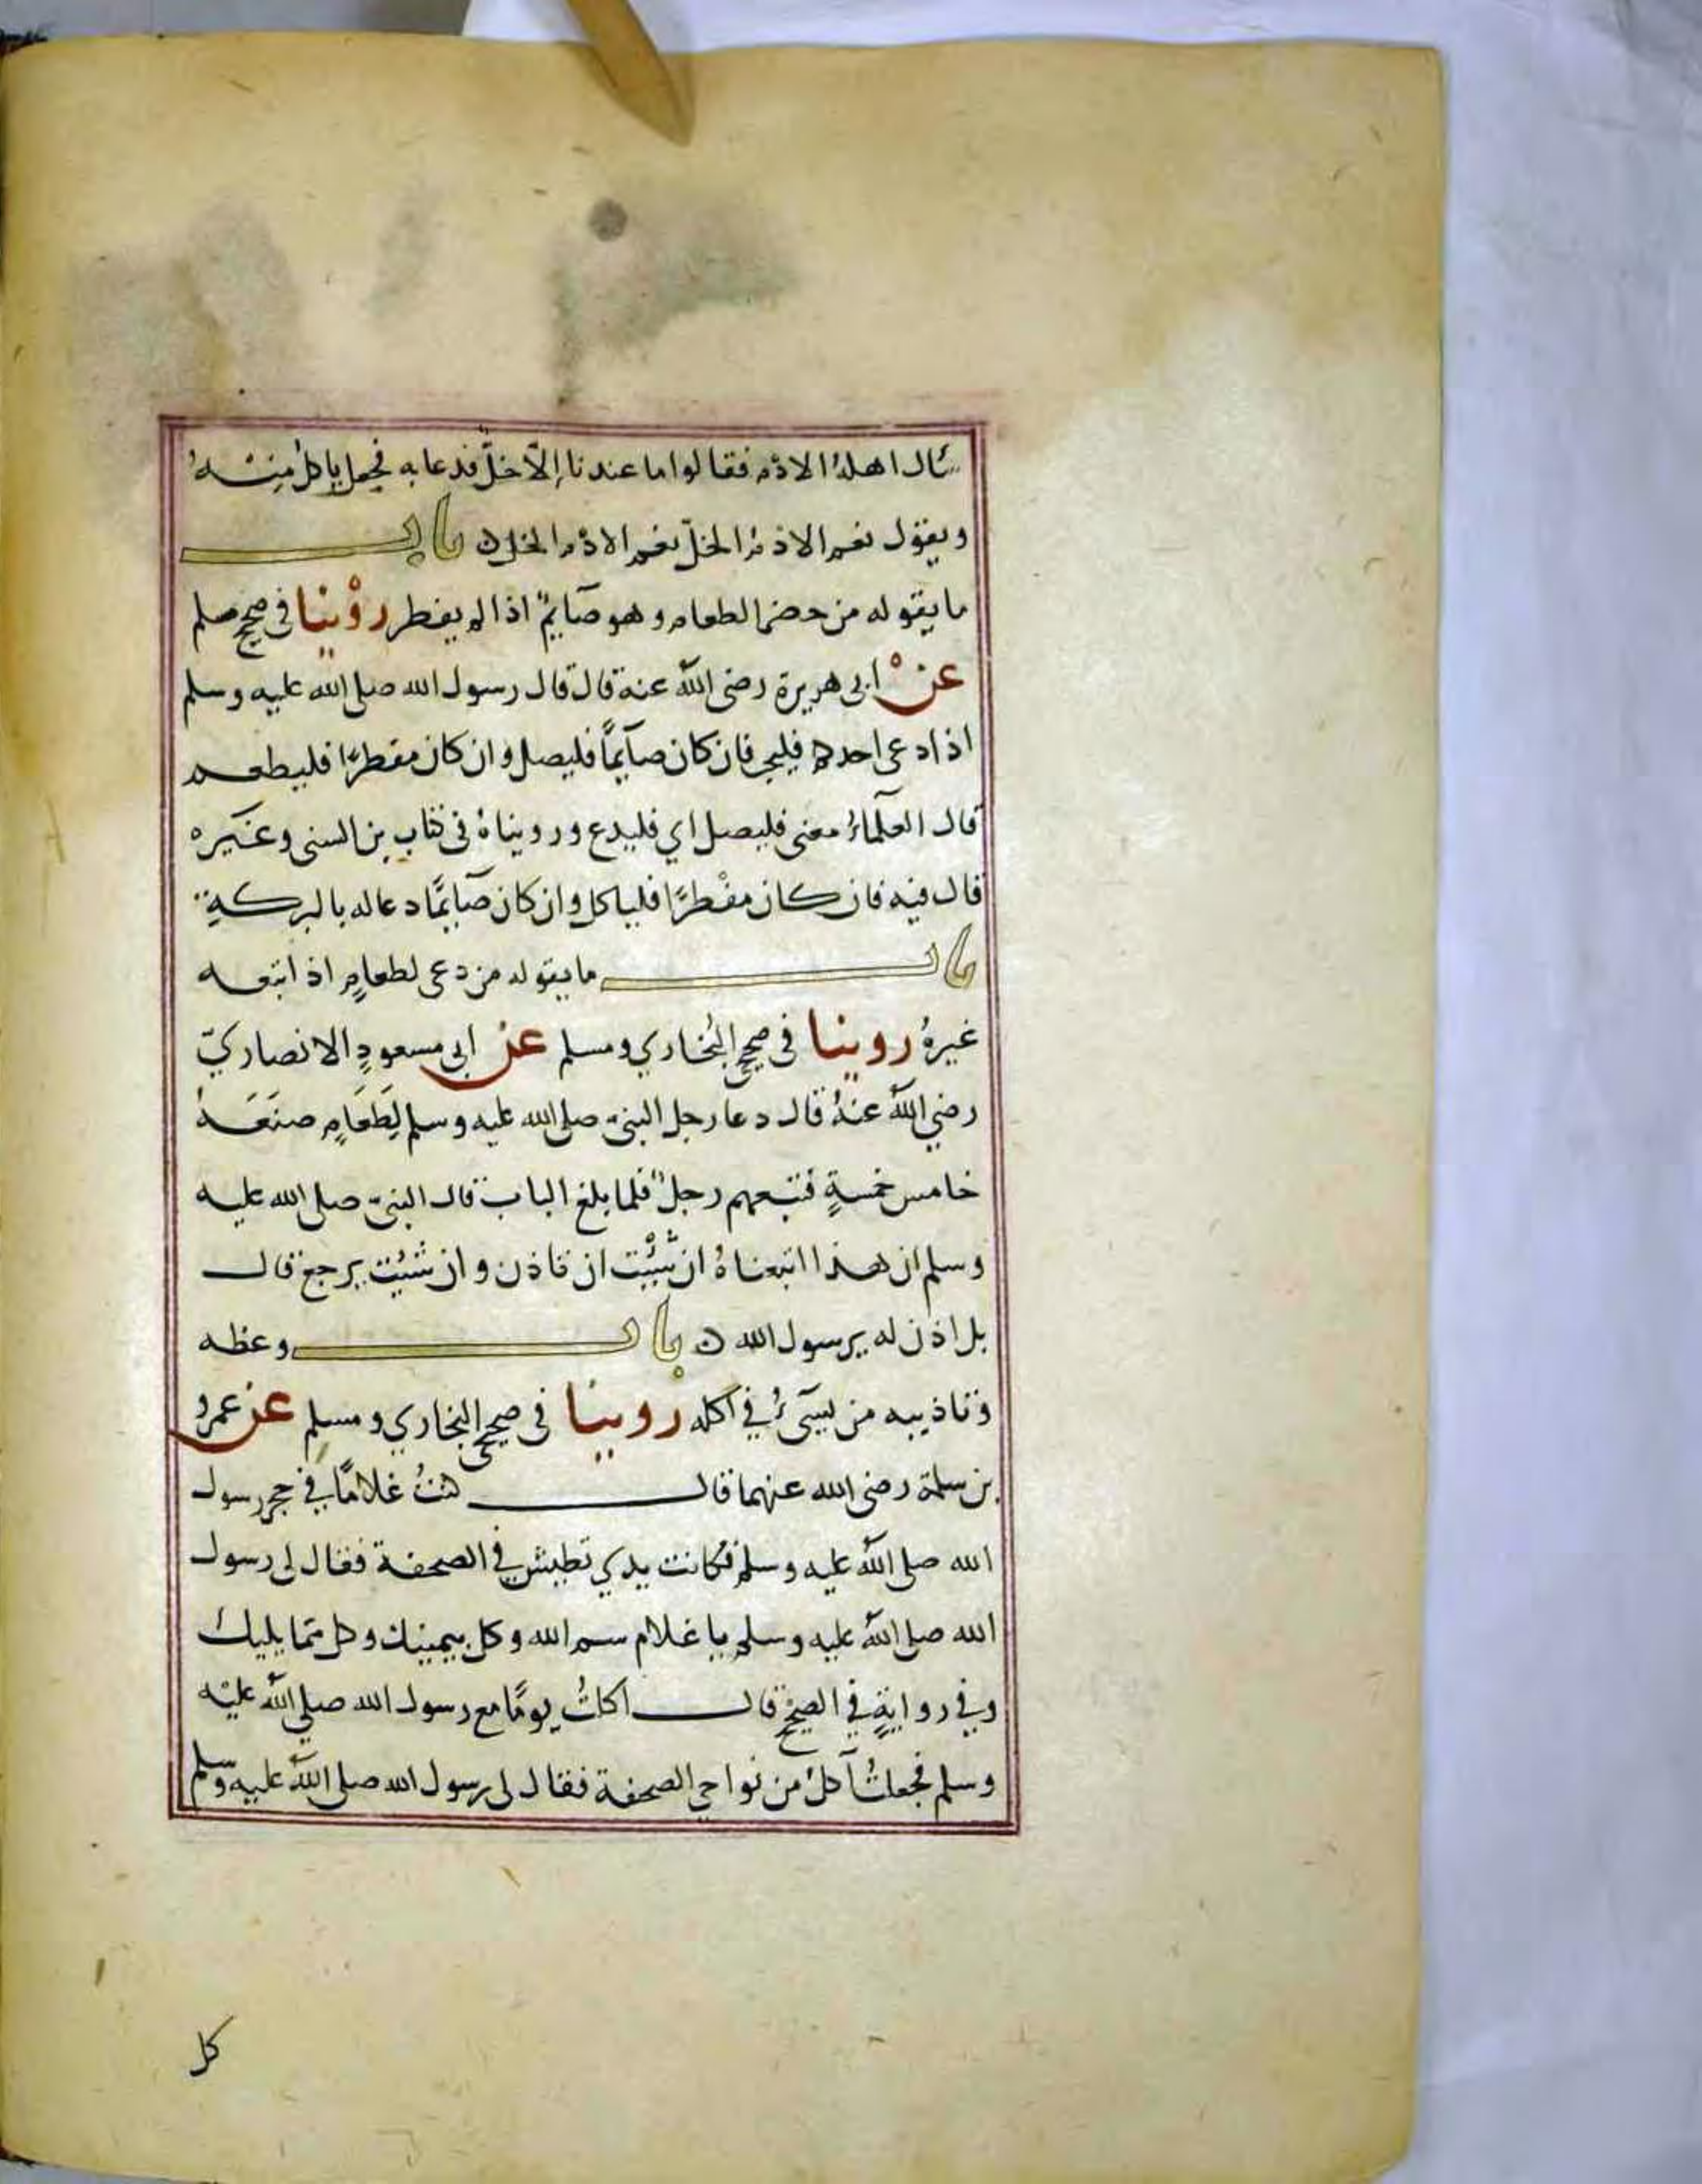 سأل اهلهُ الادُم فقالوا ما عندنا إلّا خلّ فدعا به فجعل ياكل منهُ
ويقول نعم الادُمُ الخلّ نعم الادُم الخل ن باب
ما يقوله من حضر الطعام وهو صَآيمٌ اذا لم يفطر روْينا في صحيح مسلم
عنْ ابى هريرة رضى اللّه عنه قال قال رسول الله صلى الله عليه وسلم
اذا دعى احدكم فليجب فان كان صآيمًا فليصل وان كان مفطرًا فليطعم
قال العلمآءُ معنى فليصل اي فليدع ورويناهُ فى كتاب بن السنى وغيره
قال فيه فان كان مفْطرًا فلياكل وان كان صَآيمًا دعا له بالبركةِ
باب ما يقوله من دعى لطعامٍ اذا تبعه
غيرهُ روينا فى صحيحي البُخاري ومسلم عن ابى مسعودٍ الانصاريّ
رضي اللّه عنهُ قال دعا رجل النبىّ صلى الله عليه وسلم لِطَعَامٍ صنَعَهُ
خامس خمسةٍ فتبعهم رجلٌ فلما بلغ الباب قال النبىّ صلى الله عليه
وسلم ان هذا اتبعناهُ ان شِئْت ان تاذن وان شئت يرجع قال
بل اذن له يرسول الله ن باب وعظه
وتاذيبه من يسىٓءُ في اكله روينا فى صحيحي البخاري ومسلم عن عمرو
بن سلمة رضى الله عنهما قال كنتُ غلامًا في حجر رسول
الله صلى اللّه عليه وسلم فكانت يدي تطيش في الصحفة فقال لى رسول
الله صلى اللّه عليه وسلم يا غلام سم الله وكل بيمينك وكل ممّا يليك
وفي روايةٍ في الصحيح قال اكلتُ يومًا مع رسول الله صلي اللّه عليْه
وسلم فجعلتُ آكلُ من نواحي الصحفة فقال لى رسول الله صلى اللّه عليه وسلم
كل